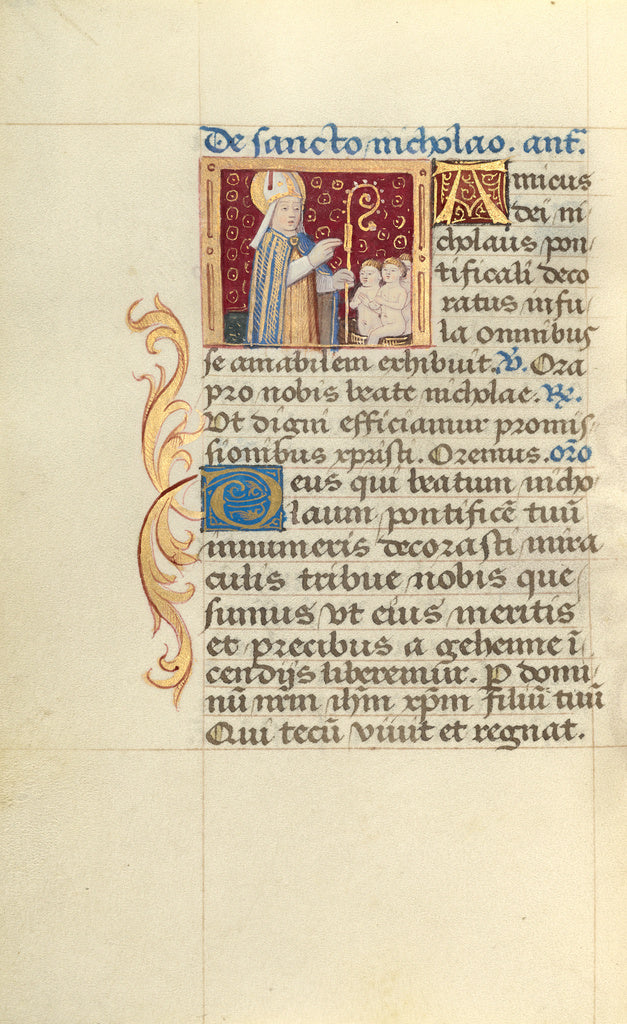 De sancto nicholao. anť.
Amicus
dei ni
cholaus pon
tificali deco
ratus infu
la omnibus
se amabilem exhibuit. ℣. Ora
pro nobis beate nicholae. ℟.
Vt digni efficiamur promis
sionibus xpristi. Oremus. orō
Deus qui beatum nicho
laum pontificē tuū
innumeris decorasti mira
culis tribue nobis que
sumus vt eius meritis
et precibus a gehenne ī
cendijs liberemur. P domi
nū nrm̄ ihm̄ xpm̄ filiū tuū
Qui tecū viuit et regnat.